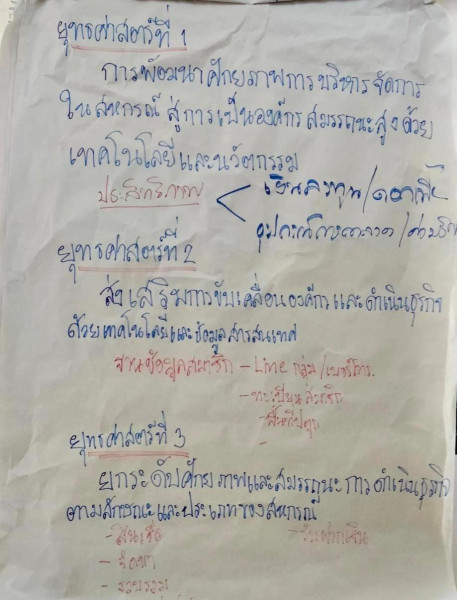 ยุทธศาสตร์ที่ 1
การพัฒนาศักยภาพการบริหารจัดการ
ในสหกรณ์ สู่การเป็นองค์กรสมรรถนะสูงด้วย
เทคโนโลยีและนวัตกรรม
ประสิทธิภาพ
เงินลงทุน/ดอกเบี้ย
ยุทธศาสตร์ที่ 2
ส่งเสริมการขับเคลื่อนองค์กรและดำเนินธุรกิจ
ด้วยเทคโนโลยีและข้อมูลสารสนเทศ
ฐานข้อมูลสมาชิก - Line กลุ่ม/เบอร์โทร.
- ทะเบียนสมาชิก
- พื้นที่ปลูก
ยุทธศาสตร์ที่ 3
ยกระดับศักยภาพและสมรรถนะการดำเนินธุรกิจ
ตามลักษณะและประเภทของสหกรณ์
- สินเชื่อ - รับฝากเงิน
- จัดหา
- รวบรวม